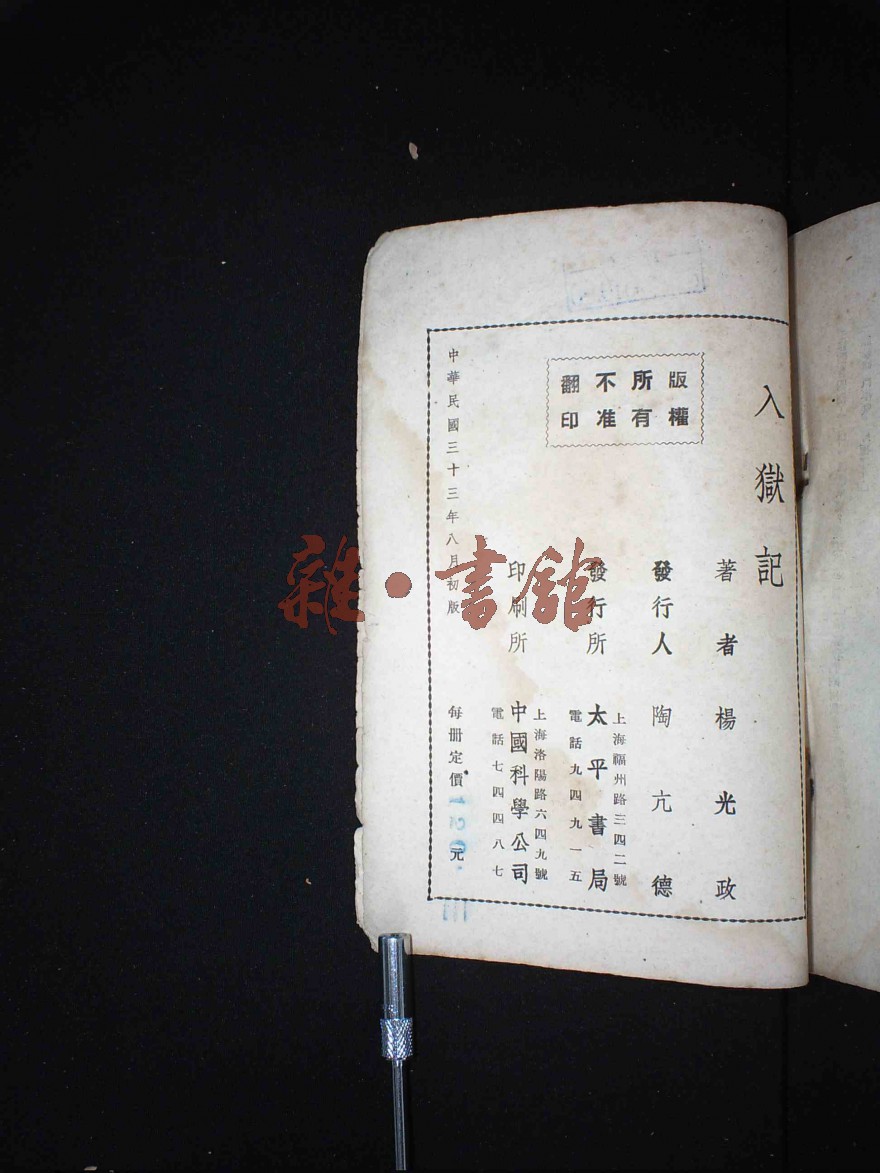 入獄記
著者 楊光政
發行人 陶亢德
上海福州路三四二號
發行所 太平書局
電話九四九一五
上海洛陽路六四九號
印刷所 中國科學公司
電話七四四八七
版權
所有
不准
翻印
中華民國三十三年八月初版
每册定價 元
雜·書館